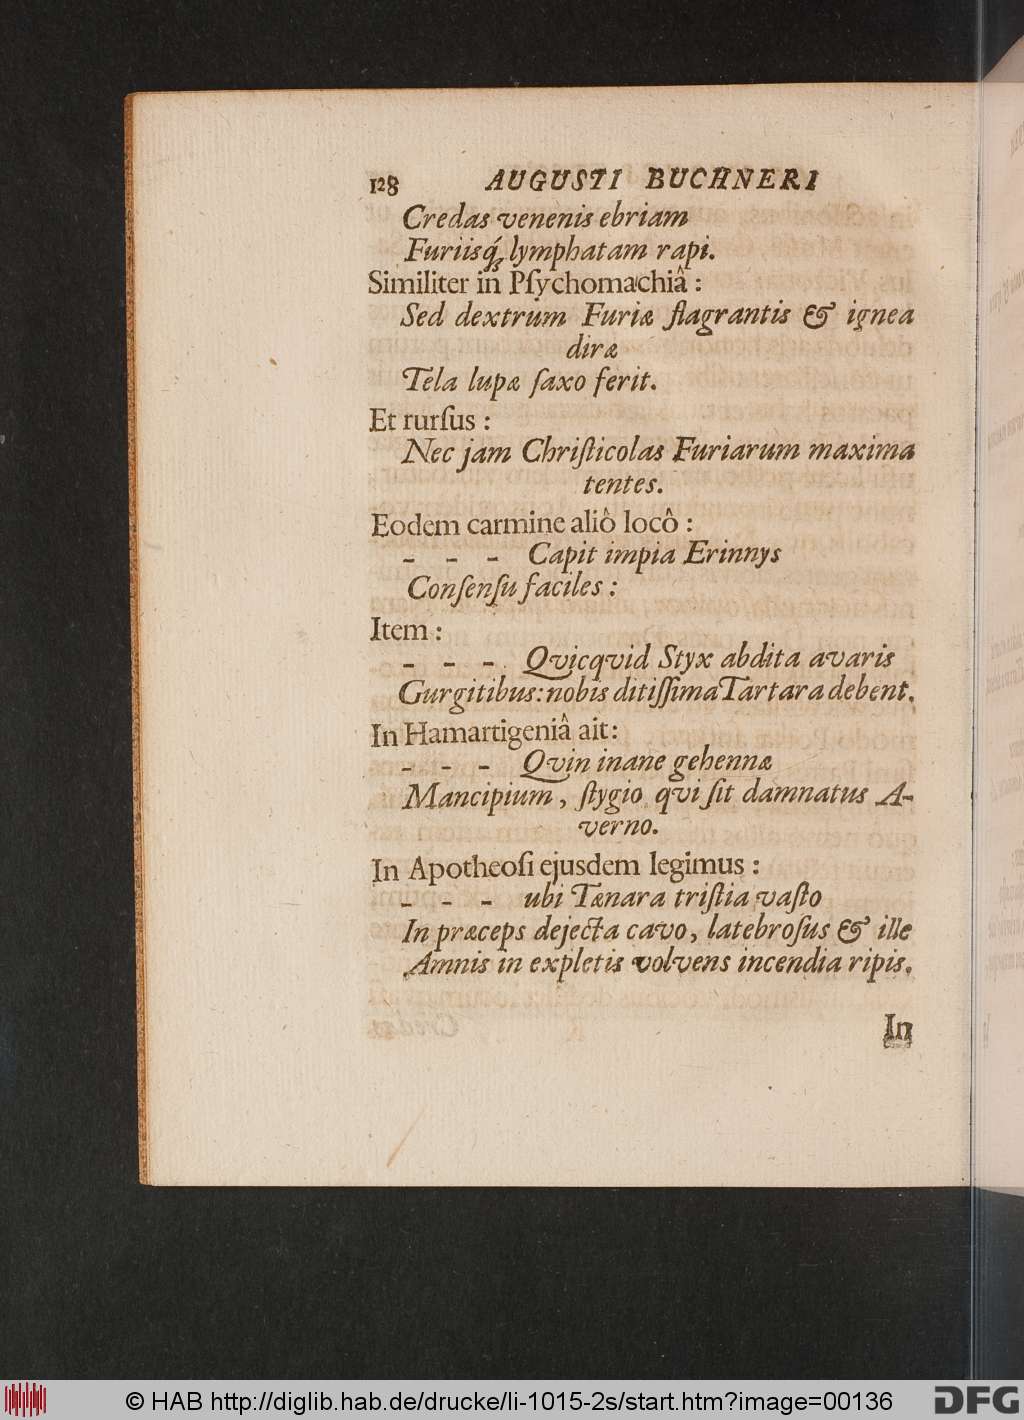 128 AUGUSTI BUCHNERI
Credas venenis ebriam
Furiisq́; lymphatam rapi.
Similiter in Pſychomachiâ:
Sed dextrum Furiæ flagrantis & ignea
diræ
Tela lupæ ſaxo ferit.
Et rurſus:
Nec jam Chriſticolas Furiarum maxima
tentes.
Eodem carmine aliô locô:
- - - Capit impia Erinnys
Conſenſu faciles:
Item:
- - - Qvicqvid Styx abdita avaris
Gurgitibus: nobis ditiſſima Tartara debent.
In Hamartigeniâ ait:
- - - Qvin inane gehennæ
Mancipium, ſtygio qvi ſit damnatus A-
verno.
In Apotheoſi ejusdem legimus:
- - - ubi Tænara triſtia vaſto
In præceps dejecta cavo, latebroſus & ille
Amnis in expletis volvens incendia ripis.
In
© HAB http://diglib.hab.de/drucke/li-1015-2s/start.htm?image=00136 DFG